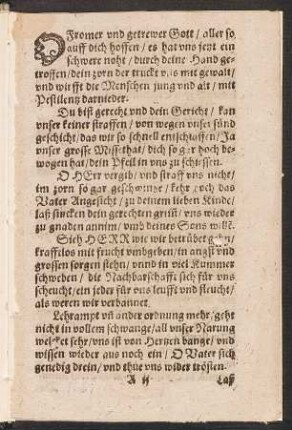 O Fromer vnd getrewer Gott / aller so
auff dich hoffen / es hat vns jetzt ein
schwere noht / durch deine Hand ge-
troffen / dein zorn der truckt vns mit gewalt /
vnd wirfft die Menschen jung vnd alt / mit
Pestilentz darnieder.
Du bist gerecht vnd dein Gericht / kan
vnser keiner straffen / von wegen vnser sünd
geschicht / das wir so schnell entschlaffen / Ja
vnser grosse Missethat / dich so gar hoch be-
wogen hat / dein Pfeil in vns zu schiessen.
O HErr vergib / vnd straff vns nicht /
im zorn so gar geschwinde / kehr doch das
Vater Angesicht / zu deinem lieben Kinde /
laß sincken dein gerechten grim / vns wieder
zu gnaden annim / vmb deines Sons willē.
Sieh HERR wie wir betrübet gehn /
krafftlos mit frucht vmbgeben / in angst vnd
grossen sorgen stehn / vnnd in viel Kummer
schweben / die Nachbarschafft sich für vns
scheucht / ein jeder für vns leufft vnd fleucht /
als weren wir verbannet.
Lehrampt vñ ander ordnung mehr / geht
nicht in vollem schwange / all vnser Narung
welcket sehr / vns ist von Hertzen bange / vnd
wissen wieder aus noch ein / O Vater sich
genedig drein / vnd thue vns wider trösten.
A ij Laß